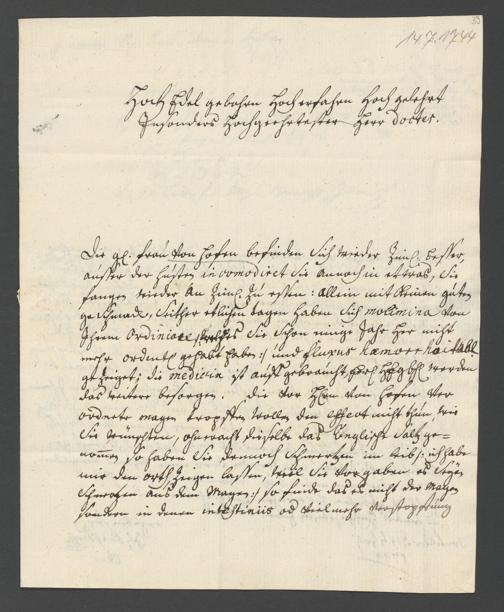 14.7.1744
Hoch Edel gebohrn Hocherfahrn Hoch gelehrt
Insonders Hochgeehrtester Herr Doctor.
Die gl. frau von Hofen befinden sich wieder ziml. besser,
ausser der husten incomodiret sie annoch in etwas, sie
fangen wieder an ziml. zu essen: allein mit keinem guten
geschmack, seither etlichen tagen haben sich molimina von
Ihrem Ordinaire, sie schon einige Jahr her nicht
mehr ordentl. gehabt haben :/ und fluxus haemorrhoidal
gezeiget; die medicin ist auß gebraucht, werden
das weitere besorgen. Die vor Hrn von Hofen ver
ordnete magen tropffen wollen den effect nicht thun, wie
sie wünschten, ohneracht dieselbe das Englische saltz ge-
nommen, so haben sie dennoch schmertzen im leib; ich habe
mir den orth zeigen lassen, weil sie vorgaben es seyen
schmertzen aus dem magen :/ so finde das es nicht der magen
sondern in denen intestiniis od vielmehr verstopffung